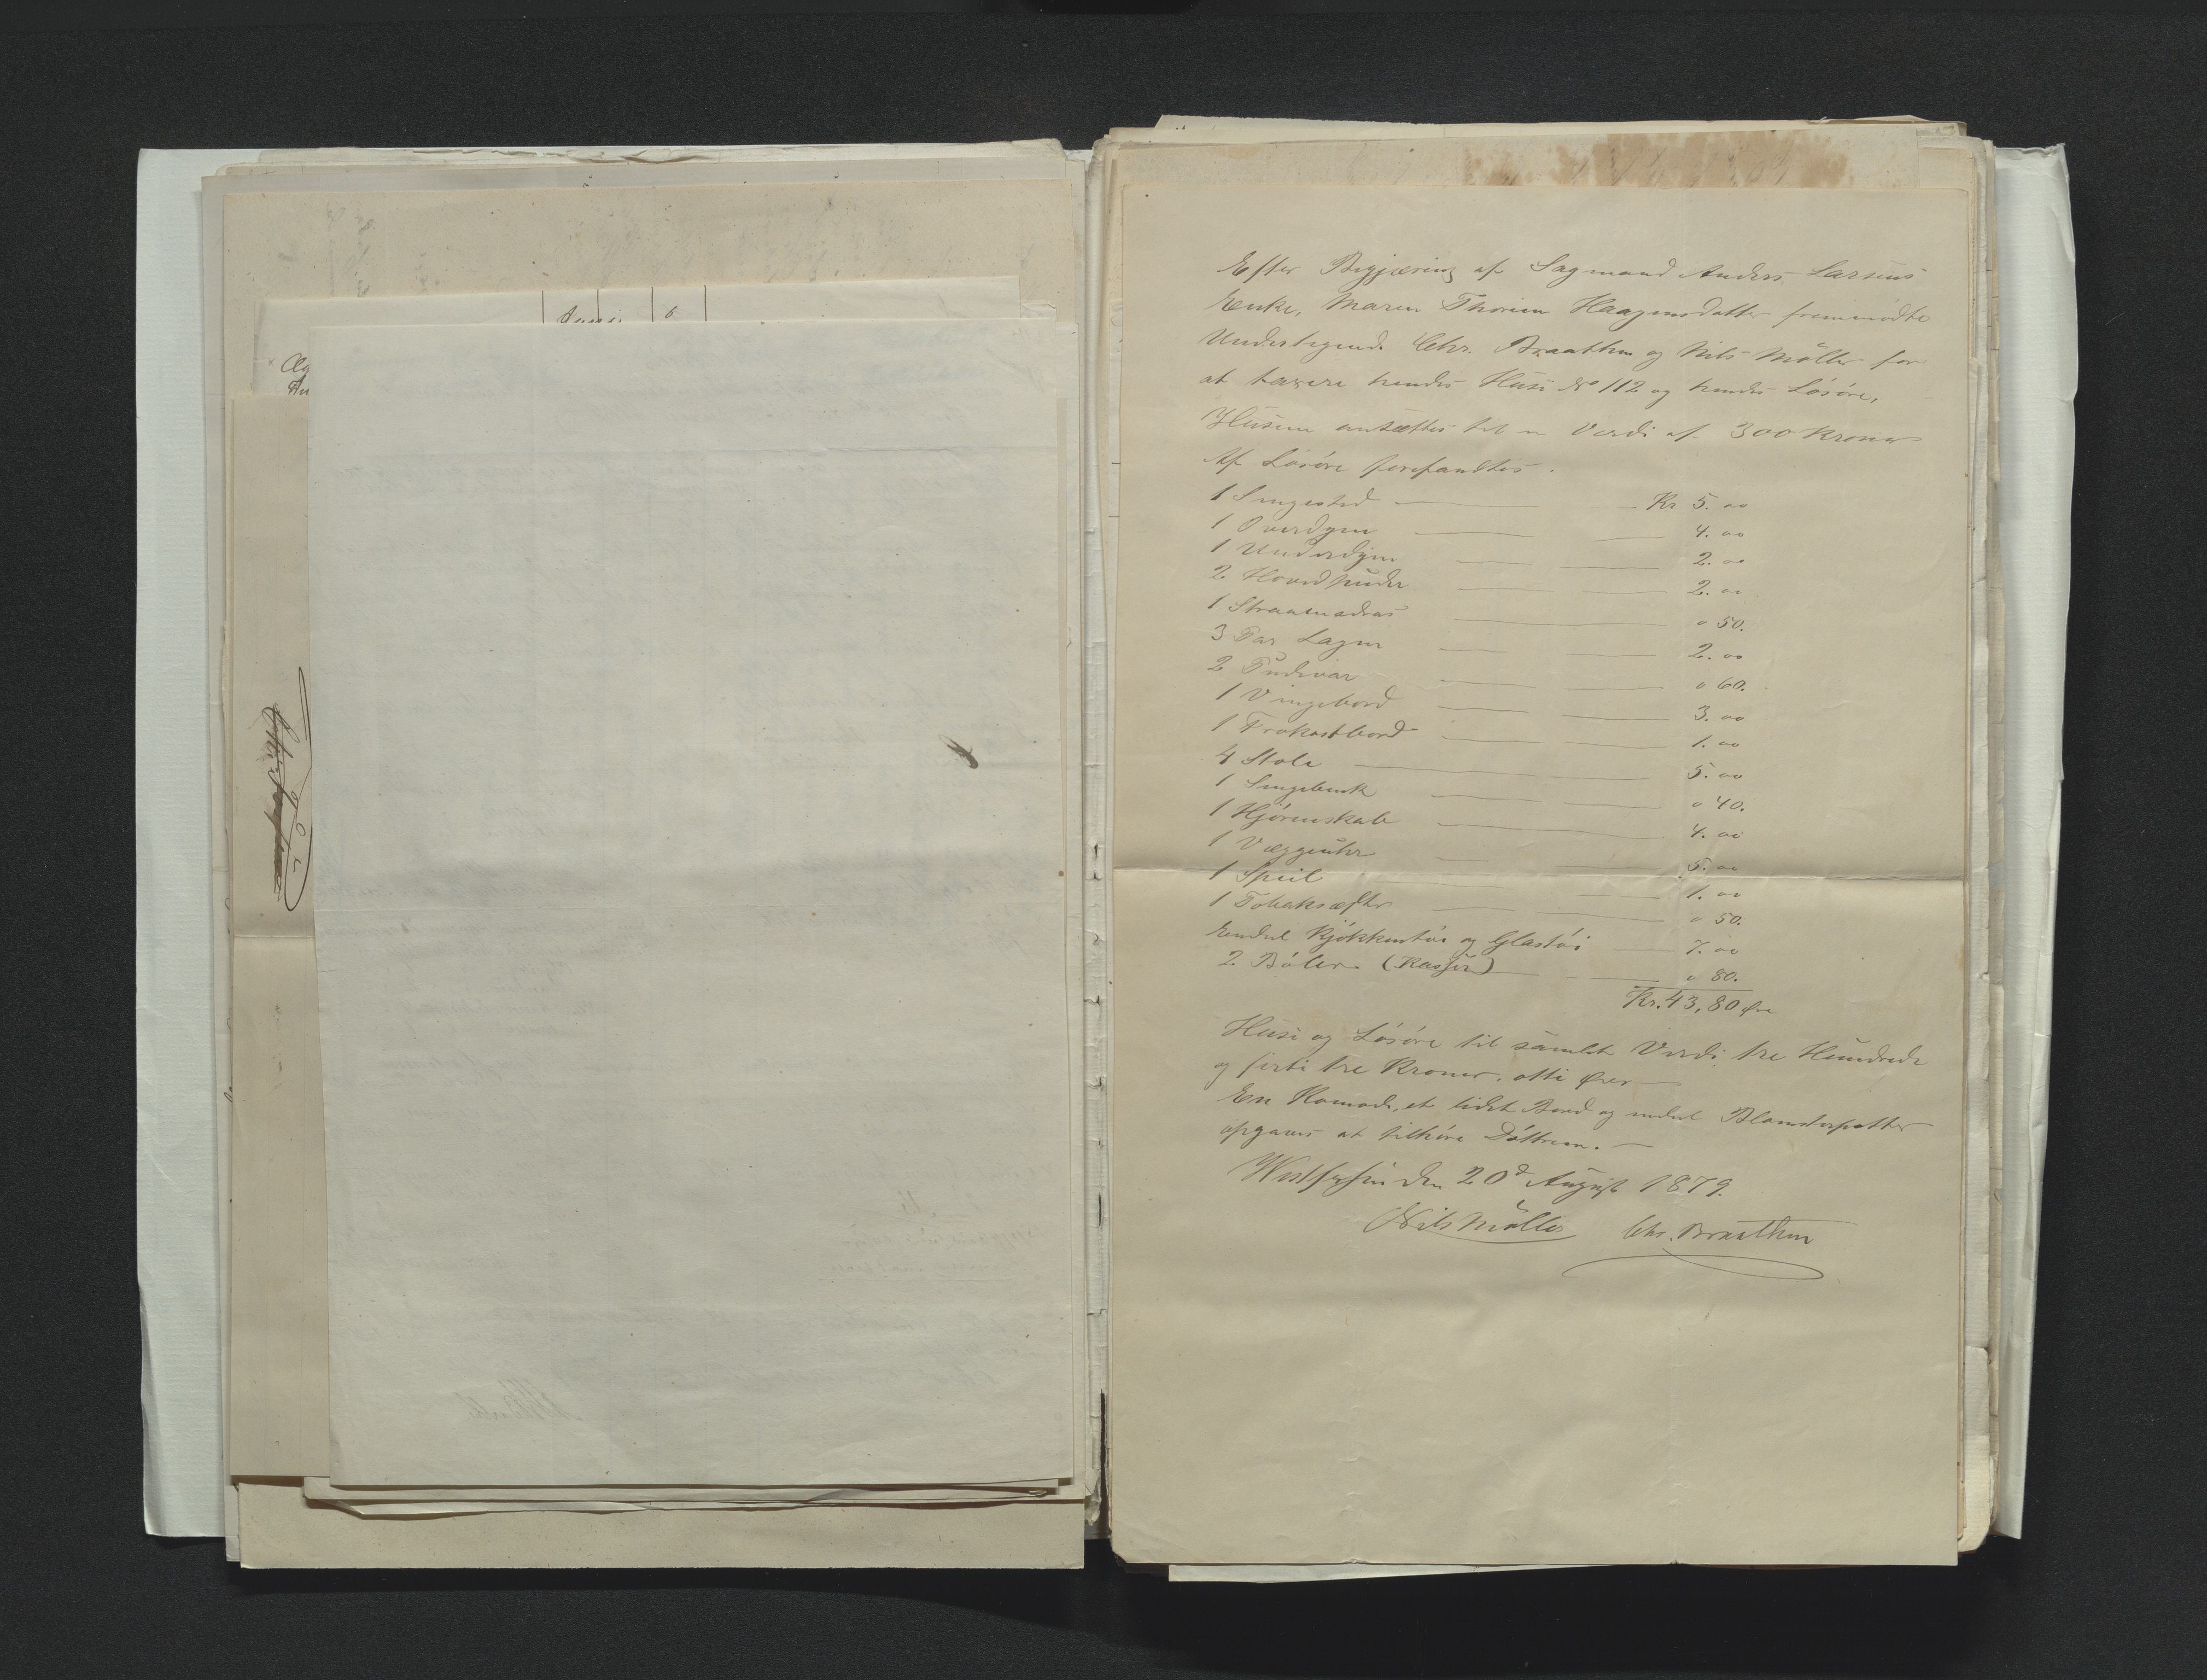 Efter Begjæring af Sagmand Anders Larsens
Enke, Maren Thorine Haagensdatter fremmødte
Undertegnede Chr. Braathen og Nils Møller for
at taxere hendes Huse No 112 og hendes Løsøre,
Husene ansættes til en Verdi af 300 Kroner
Af Løsøre forefandtes.
1 Sengested — Kr 5. 00
1 Overdyne — 4. 00
1 Underdyne — 2. 00
2 Hovedpuder — 2. 00
1 Straamadras — 0 50.
3 Par Lagen — 2. 00
2 Pudevar — 0 60.
1 Vingebord — 3. 00
1 Frokostbord — 1. 00
4 Stole — 5. 00
1 Sengebenk — 0 40.
1 Hjørneskab — 4. 00
1 Væggeuhr — 5. 00
1 Speil — 1. 00
1 — 0 50.
Endeel Kjøkkentøi og Glastøi — 7. 00
2 Bøler (Kasser) — 0 80.
Kr. 43,80 Øre
Huse og Løsøre til samlet Verdi tre Hundrede
og firti tre Kroner, otti Øre —
En Komode, et lidet Bord og endeel Blomsterpotter
opgaves at tilhøre Døttrene. —
den 20d August 1879.
Nils Møller Chr. Braathen